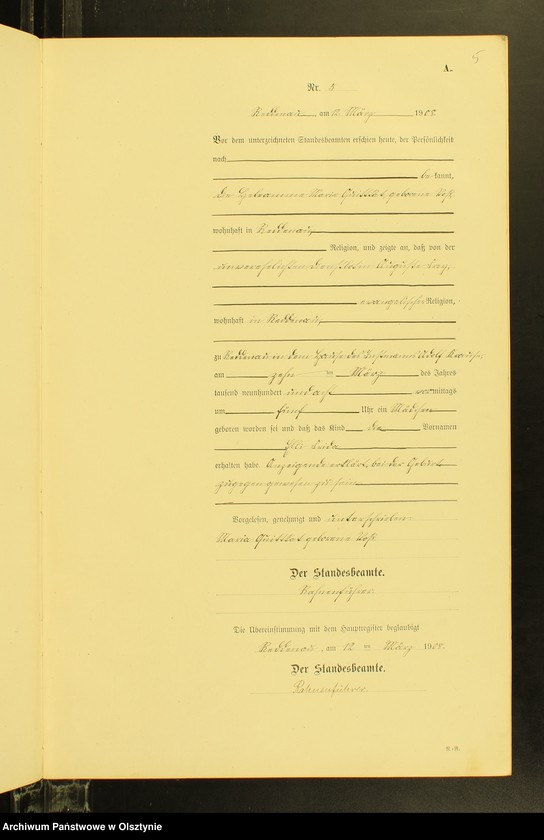 5
A.
Nr. 5
Reddenau, am 12. März 1908.
Vor dem unterzeichneten Standesbeamten erschien heute, der Persönlichkeit
nach
be kannt,
die Hebeamme Maria geborene
wohnhaft in Reddenau,
Religion, und zeigte an, daß von der
unverehelichten Auguste
evangelischer Religion,
wohnhaft in Reddenau,
zu Reddenau in dem Hause des Adolf
am zehn ten März des Jahres
tausend neunhundert und acht vormittags
um fünf Uhr ein Mädchen
geboren worden sei und daß das Kind die Vornamen
erhalten habe. Anzeigende erklärt, bei der Geburt
zugegen gewesen zu sein
Vorgelesen, genehmigt und unterschrieben
Maria geborene
Der Standesbeamte.
Die Übereinstimmung mit dem Hauptregister beglaubigt
Reddenau, am 12 ten März 1908.
Der Standesbeamte.
Archiwum Państwowe w Olsztynie